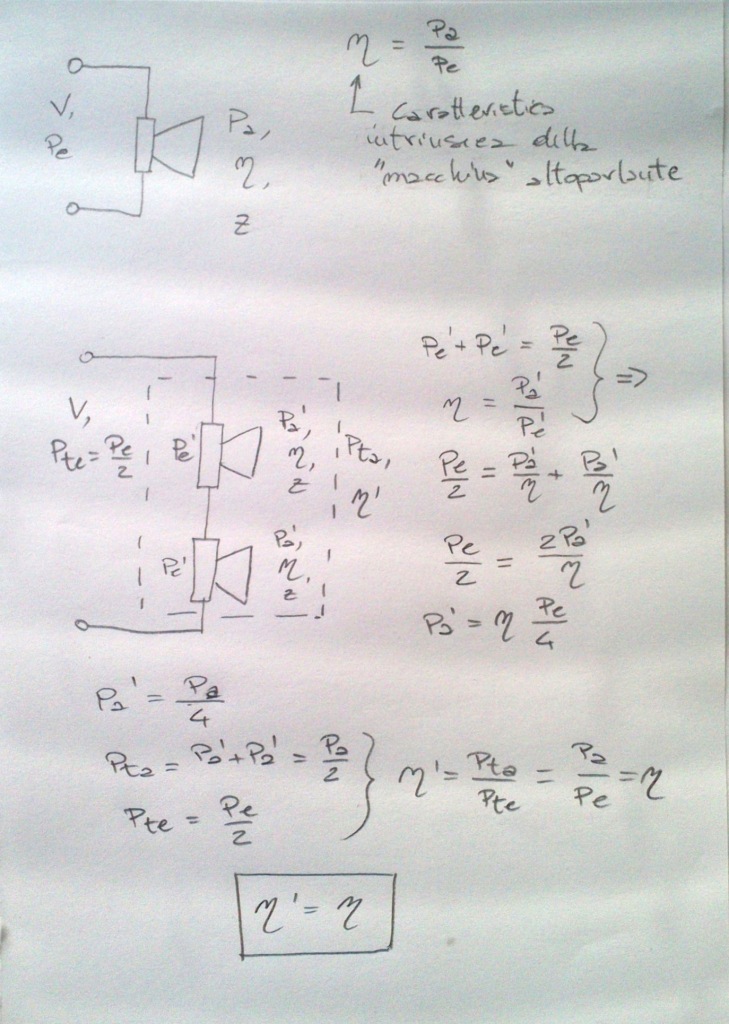 η = Pa/Pe
caratteristica
intrinseca della
"macchina" altoparlante
V,
Pe
Pa,
η,
z
V,
Pte = Pe/2
Pe'
Pa',
η,
z
Pe'
Pa',
η,
z
Pta,
η'
Pe' + Pe' = Pe/2
η = Pa'/Pe'
} ⇒
Pe/2 = Pa'/η + Pa'/η
Pe/2 = 2Pa'/η
Pa' = η Pe/4
Pa' = Pa/4
Pta = Pa' + Pa' = Pa/2
Pte = Pe/2
} η' = Pta/Pte = Pa/Pe = η
η' = η